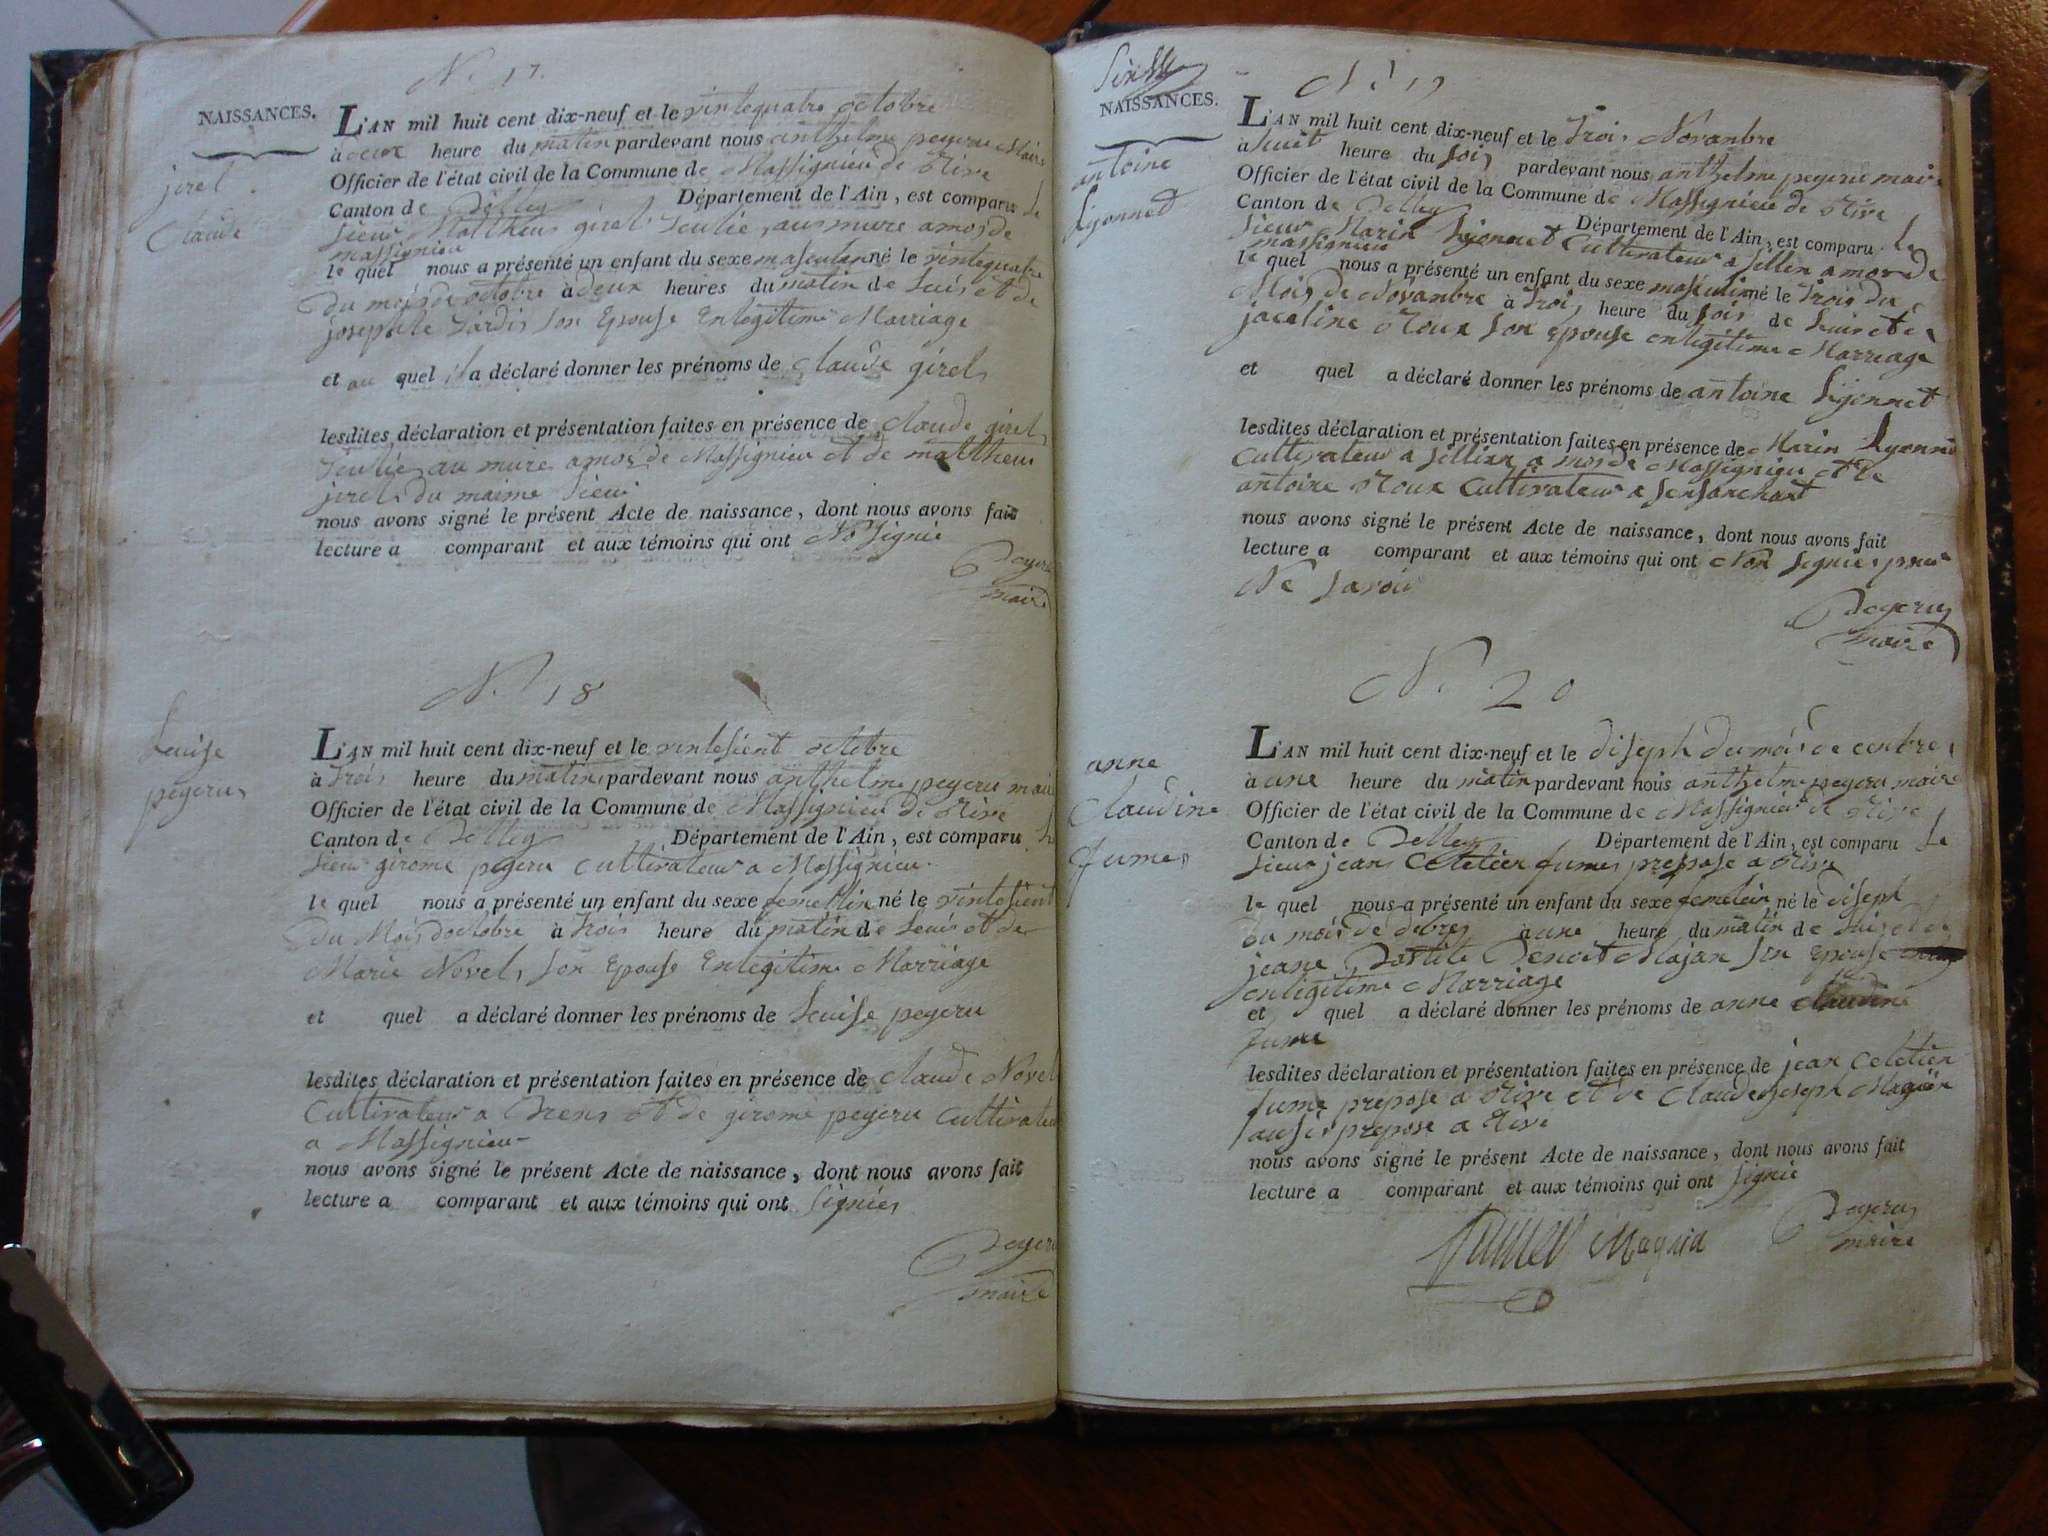 N. 17.
NAISSANCES.
jirel
Claude
L'AN mil huit cent dix-neuf et le vintequatre octobre
à deux heure du matin pardevant nous anthelme pegeru Maire
Officier de l'état civil de la Commune de Massignieu de Rive
Canton de Belley Département de l'Ain, est comparu Le
Sieur Mattheus girel aumure amos de
massignieu
le quel nous a présenté un enfant du sexe masculin né le vintequatre
Du mois de octobre à deux heures du matin de Luis et de
josephte Jardis Son Epouse Enlegitime Marriage
et au quel il a déclaré donner les prénoms de Claude girel
lesdites déclaration et présentation faites en présence de Claude girel
au mure amos de Massignieu et de mattheus
jirel du maime Lieu
nous avons signé le présent Acte de naissance, dont nous avons fait
lecture a comparant et aux témoins qui ont No Signié
Pegeru
maire
N. 18
Leuise
pegeru
L'AN mil huit cent dix-neuf et le vintesient octobre
à Trois heure du matin pardevant nous anthelme pegeru maire
Officier de l'état civil de la Commune de Massignieu de Rive
Canton de Belley Département de l'Ain, est comparu Le
Sieur girome pegeru cultivateur a Massignieu
le quel nous a présenté un enfant du sexe femellin né le vintesient
Du Mois doctobre à trois heure du matin de Leuis et de
Marie Novel Son Epouse Enlegitime Marriage
et quel a déclaré donner les prénoms de Leuise pegeru
lesdites déclaration et présentation faites en présence de Claude Novel
Cultivateur a Brens et de girome pegeru Cultivateur
a Massignieu
nous avons signé le présent Acte de naissance, dont nous avons fait
lecture a comparant et aux témoins qui ont Signiés
Pegeru
maire
N. 19
NAISSANCES.
antoine
Lyonnet
L'AN mil huit cent dix-neuf et le Trois Novanbre
à huit heure du Soir pardevant nous anthelme pegeru maire
Officier de l'état civil de la Commune de Massignieu de Rive
Canton de Belley Département de l'Ain, est comparu Le
Sieur Marin Lyonnet Cultivateur a Sellin amos de
massignieu
le quel nous a présenté un enfant du sexe masculin né le Trois du
Mois de Novanbre à Trois heure du Soir de Luis et de
jaceline Roux Son Epouse enlegitime Marriage
et quel a déclaré donner les prénoms de antoine Lyonnet
lesdites déclaration et présentation faites en présence de Marin Lyonnet
Cultivateur a Sellian a mos de Massignieu et de
antoine Roux Cultivateur a
nous avons signé le présent Acte de naissance, dont nous avons fait
lecture a comparant et aux témoins qui ont Non Signies pour
Ne Savoir
Pegeru
maire
N. 20
anne
Claudine
fumes
L'AN mil huit cent dix-neuf et le diseph du mois de
à une heure du matin pardevant nous anthelme pegeru maire
Officier de l'état civil de la Commune de Massignieu de Rive
Canton de Belley Département de l'Ain, est comparu Le
Sieur jean Celetien fumes prepose a Rive
le quel nous a présenté un enfant du sexe femelein né le diseph
du mois de debres à une heure du matin de Luis et de
jeane Benoit Majan Son Epouse
enlegitime Marriage
et quel a déclaré donner les prénoms de anne Claudine
fume
lesdites déclaration et présentation faites en présence de jean Celetien
fume prepose a Rive et de Claude joseph Magnin
ausis prepose a Rive
nous avons signé le présent Acte de naissance, dont nous avons fait
lecture a comparant et aux témoins qui ont Signié
Magnin
Pegeru
maire